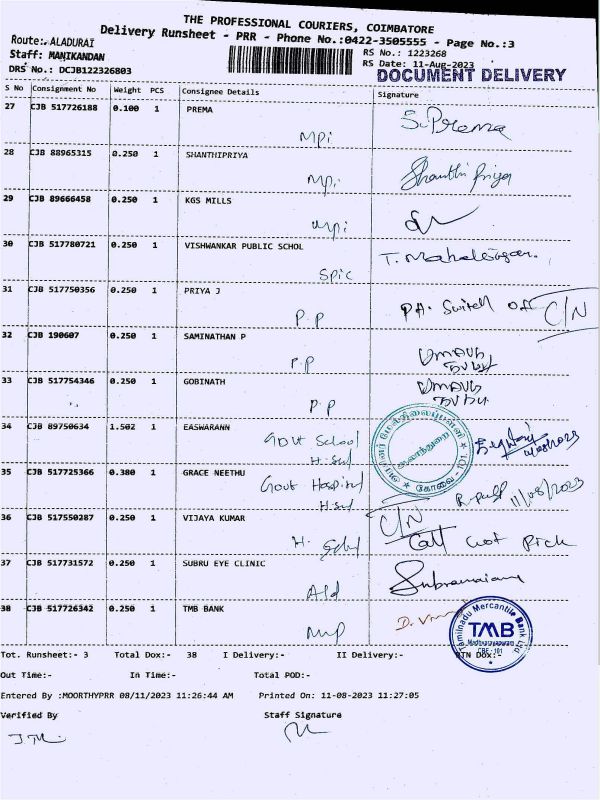 THE PROFESSIONAL COURIERS, COIMBATORE
Delivery Runsheet - PRR - Phone No.:0422-3505555 - Page No.:3
Route:-ALADURAI
Staff: MANIKANDAN
DRS No.: DCJB122326803
RS No.: 1223268
RS Date: 11-Aug-2023
DOCUMENT DELIVERY
S No Consignment No Weight PCS Consignee Details Signature
27 CJB 517726188 0.100 1 PREMA S. Prema
Mpi
28 CJB 88965315 0.250 1 SHANTHIPRIYA Shanthi Priya
Mpi
29 CJB 89666458 0.250 1 KGS MILLS
Mpi
30 CJB 517780721 0.250 1 VISHWANKAR PUBLIC SCHOL
Spic
31 CJB 517750356 0.250 1 PRIYA J Switch off C/N
P.P
32 CJB 190607 0.250 1 SAMINATHAN P
P.P
33 CJB 517754346 0.250 1 GOBINATH
P.P
34 CJB 89750634 1.502 1 EASWARANN
Govt School
35 CJB 517725366 0.380 1 GRACE NEETHU
Govt Hospital 11/08/2023
36 CJB 517550287 0.250 1 VIJAYA KUMAR C/N
Call not Pick
37 CJB 517731572 0.250 1 SUBRU EYE CLINIC
Ald
38 CJB 517726342 0.250 1 TMB BANK
Mp
Tamilnadu Mercantile Bank Ltd
TMB
CBE-101
Tot. Runsheet:- 3 Total Dox:- 38 I Delivery:- II Delivery:- RTN Dox:-
Out Time:- In Time:- Total POD:-
Entered By :MOORTHYPRR 08/11/2023 11:26:44 AM Printed On: 11-08-2023 11:27:05
Verified By Staff Signature